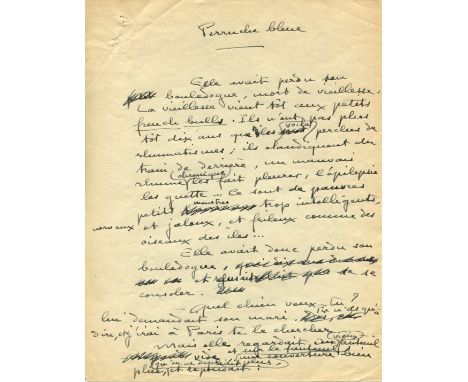 Perruche bleue
Elle avait perdu son
bouledogue, mort de vieillesse.
La vieillesse vient tôt aux petits
french bulls. Ils n'ont pas plus
tôt dix ans que les voilà perclus de
rhumatismes ; ils claudiquent du
train de derrière, un mauvais
rhume chronique les fait pleurer, l'épilepsie
les guette... Ce sont de pauvres
petits monstres trop intelligents,
nerveux et jaloux, et frileux comme des
oiseaux des îles...
Elle avait donc perdu son
bouledogue, et se
consoler.
- Quel chien veux-tu ?
lui demandait son mari. Tu n'as qu'à
dire, et j'irai à Paris te le chercher.
Mais elle regardait fauteuil
vide et sur le fauteuil une couverture bien
pliée, et répondait :